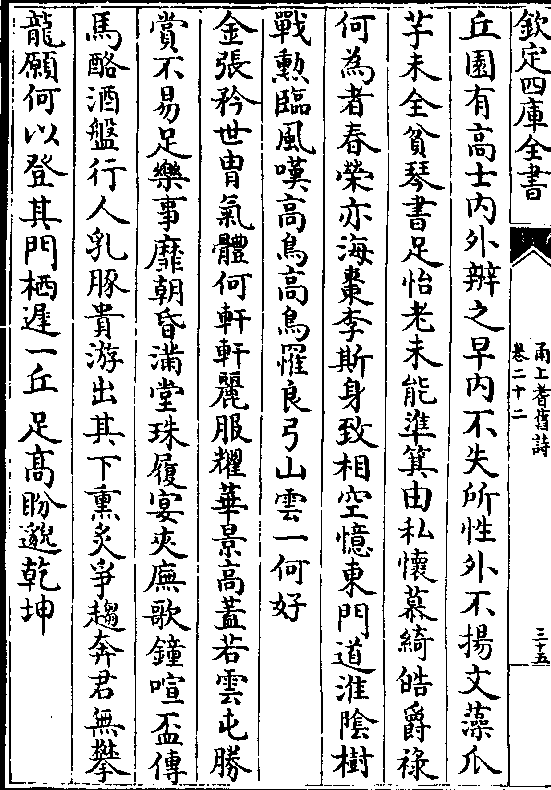 欽定四庫全書
甬上耆舊詩
卷二十二
三十五
丘園有高士内外辦之早内不失所性外不揚文藻爪
芋未全貧琴書足怡老未能準箕由私懷慕綺皓爵祿
何為者春榮亦海棗李斯身致相空憶東門道淮隂樹
戰勲臨風嘆高鳥高鳥罹良弓山雲一何好
金張矜世胄氣體何軒軒麗服耀華景高蓋若雲屯勝
賞不易足樂事靡朝昏滿堂珠履宴夾廡歌鐘喧盃傳
馬酪酒盤行人乳豚貴游出其下熏炙爭趨奔君無攀
龍願何以登其門栖遲一丘足髙盼邈乾坤